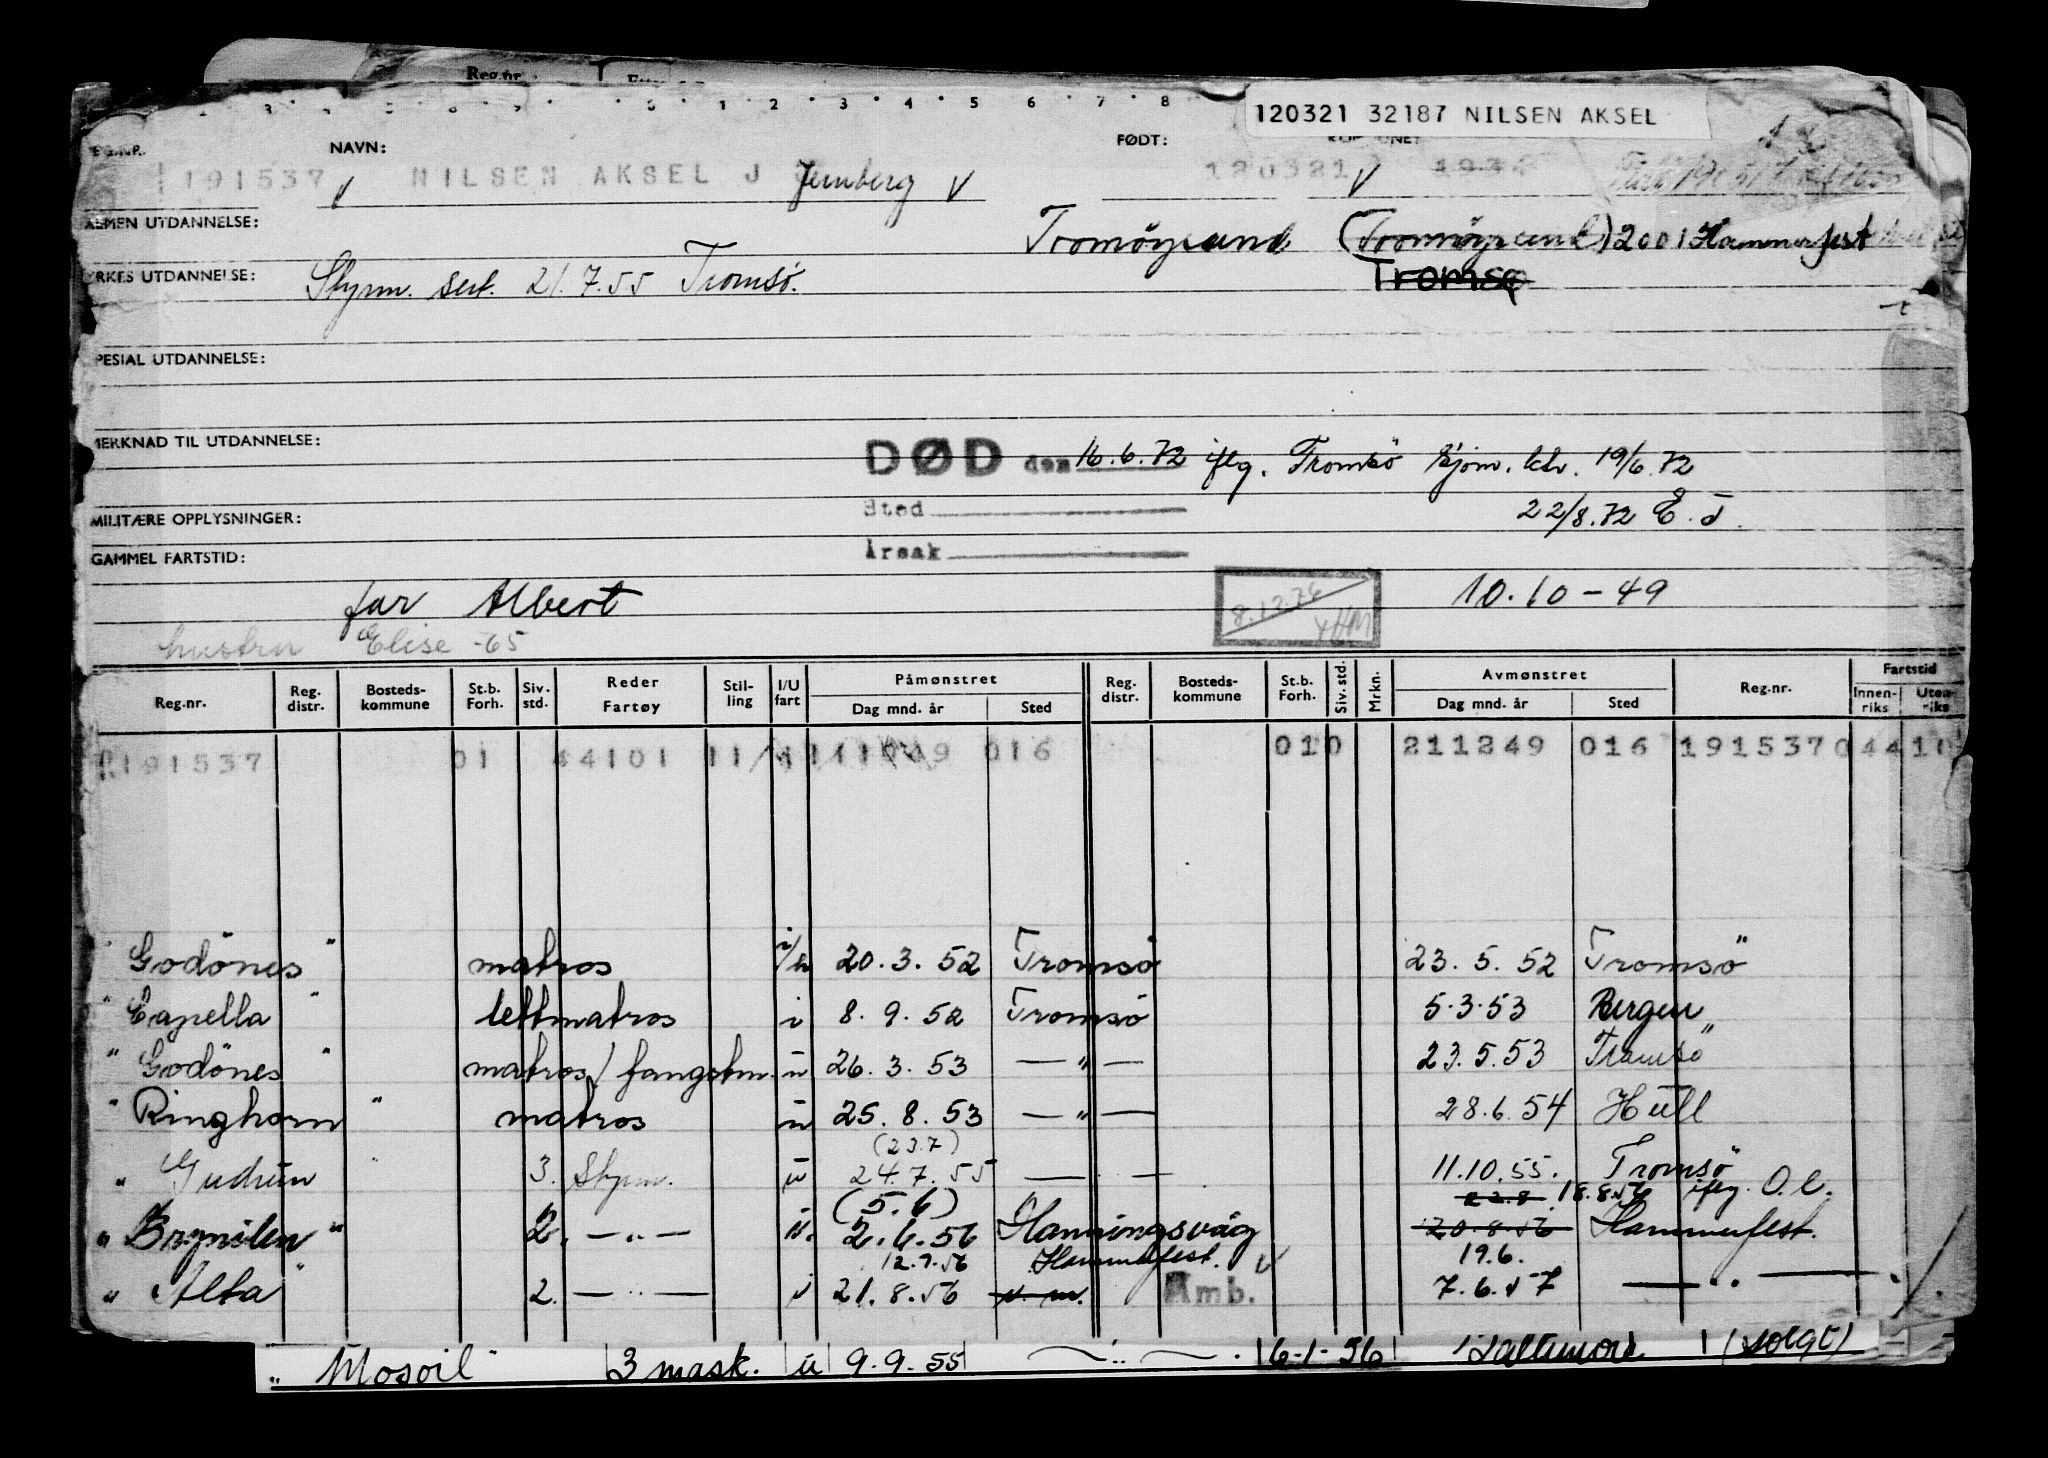 Reg.nr.
3 4 5 6 7 8 1 2 3 4 5 6 7 8
120321 32187 NILSEN AKSEL
NAVN: FØDT:
191537 NILSEN AKSEL J Jernberg 120321
ALMEN UTDANNELSE: Tromöysund (Tromöysund) 2001 Hammerfest
YRKES UTDANNELSE: Styrm. sert. 21.7.55 Tromsö. Tromsø
SPESIAL UTDANNELSE:
MERKNAD TIL UTDANNELSE: DØD den 16.6.72 iflg. Tromsö sjöm. ktr. 19/6.72
MILITÆRE OPPLYSNINGER: Sted 22/8.72
GAMMEL FARTSTID: Årsak
far Albert 8.12.76 10.10-49
hustru Elise -65
Reg.nr. Reg. distr. Bosteds-kommune St.b. Forh. Siv. std. Reder Fartøy Stil-ling I/U fart Påmønstret Dag mnd. år Sted Reg. distr. Bosteds-kommune St.b. Forh. Siv. std. Mrkn. Avmønstret Dag mnd. år Sted Reg.nr. Fartstid Innen-riks Uten-riks
191537 01 44101 11 016 010 211249 016 191537 044 10
" Godönes " matros i/u 20.3.52 Tromsö 23.5.52 Tromsö
" Capella " lettmatros i 8.9.52 Tromsö 5.3.53 Bergen
" Godönes " matros/fangstm. u 26.3.53 — " — 23.5.53 Tromsö
" Ringhorn " matros u 25.8.53 — " — 28.6.54 Hull
(23.7)
" Gudrun 3. Styrm. u 24.7.55 — — 11.10.55. Tromsö
(5.6) 22.8 18.8.56 iflg. O.l.
" Brynilen " 2. — " — u. 2.6.56 Honningsvåg 20.8.56 Hammerfest.
12.7.56 Hammerfest. 19.6.
" Alta " 2. — " — i 21.8.56 Amb. 7.6.57 — " —
" Mosoil " 3 mask. u 9.9.55 — " — 6-1-56 Baltimore (solgt)